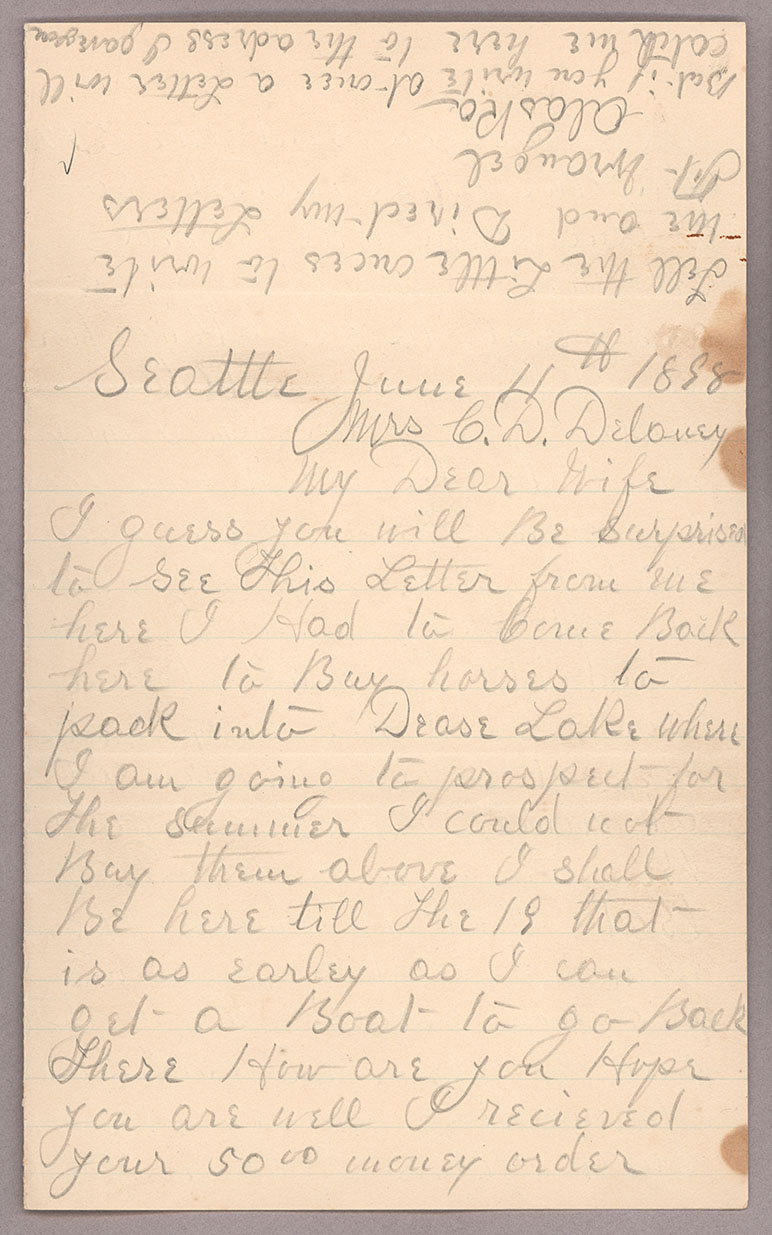 Seattle June 11th 1898
Mrs C. D. Delaney
My Dear Wife
I guess you will Be surprised
to see This Letter from me
here I Had to Come Back
here to Buy horses to
pack into Dease Lake where
I am going to prospect for
The summer I could not
Buy them above I shall
Be here till The 19 that
is as earley as I can
get a Boat to go Back
There How are you Hope
you are well I recieved
your 50 00 money order
Tell the Little ones to write
me and Direct my Letters
Ft Wrangel
Alaska
But if you write at once a Letter will
catch me here to the adress I gave you